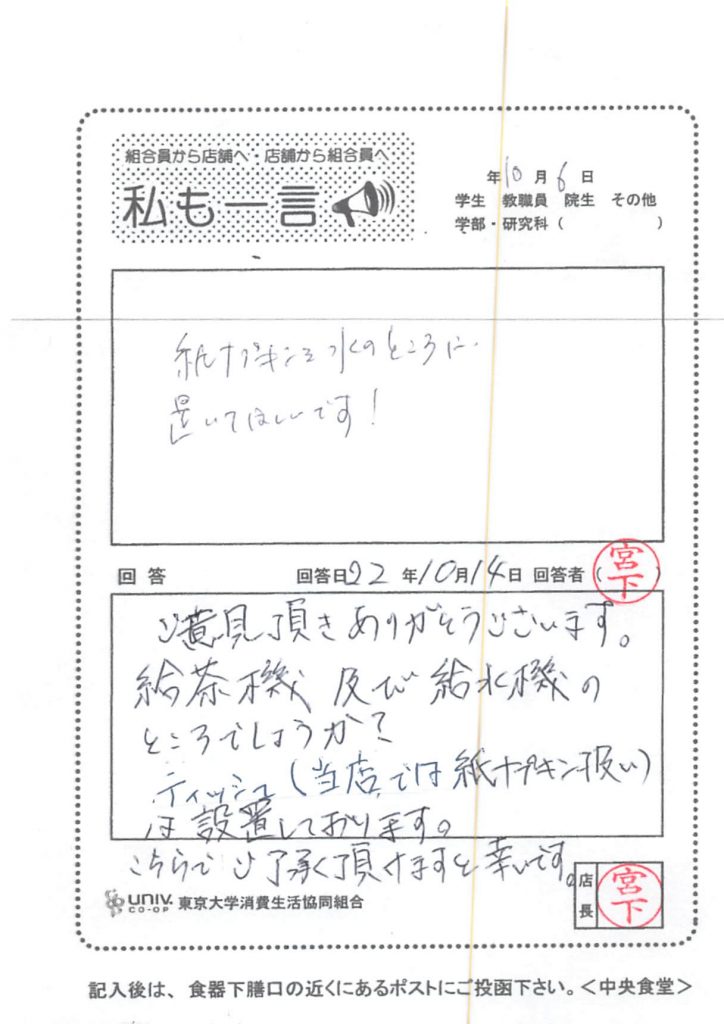 組合員から店舗へ・店舗から組合員へ
私も一言
年10月6日
学生 教職員 院生 その他
学部・研究科（ ）
紙ナプキンを水のところに
置いてほしいです！
回答 回答日22年10月14日 回答者（宮下）
ご意見頂きありがとうございます。
給茶機 及び 給水機の
ところでしょうか？
ティッシュ（当店では紙ナプキン扱い）
は設置しております。
こちらでご了承頂けますと幸いです。
店長 宮下
UNIV. CO-OP 東京大学消費生活協同組合
記入後は、食器下膳口の近くにあるポストにご投函下さい。＜中央食堂＞